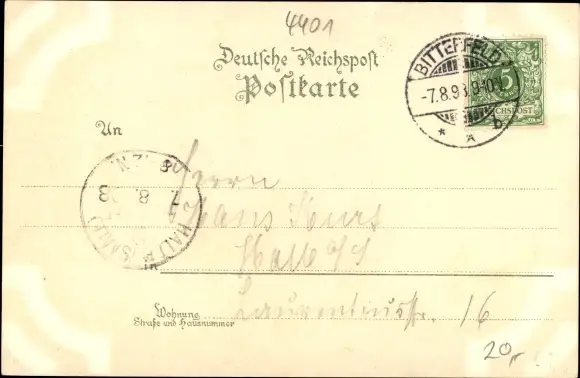 4401
Deutsche Reichspost
Postkarte
BITTERFELD
-7.8.98. 9-10
b.
5
REICHSPOST
An
Herrn
Hans
Halle a/S
7. 8. 98
HALLE (SAALE)
Laurentiusstr. 16
Wohnung
Straße und Hausnummer
20,-